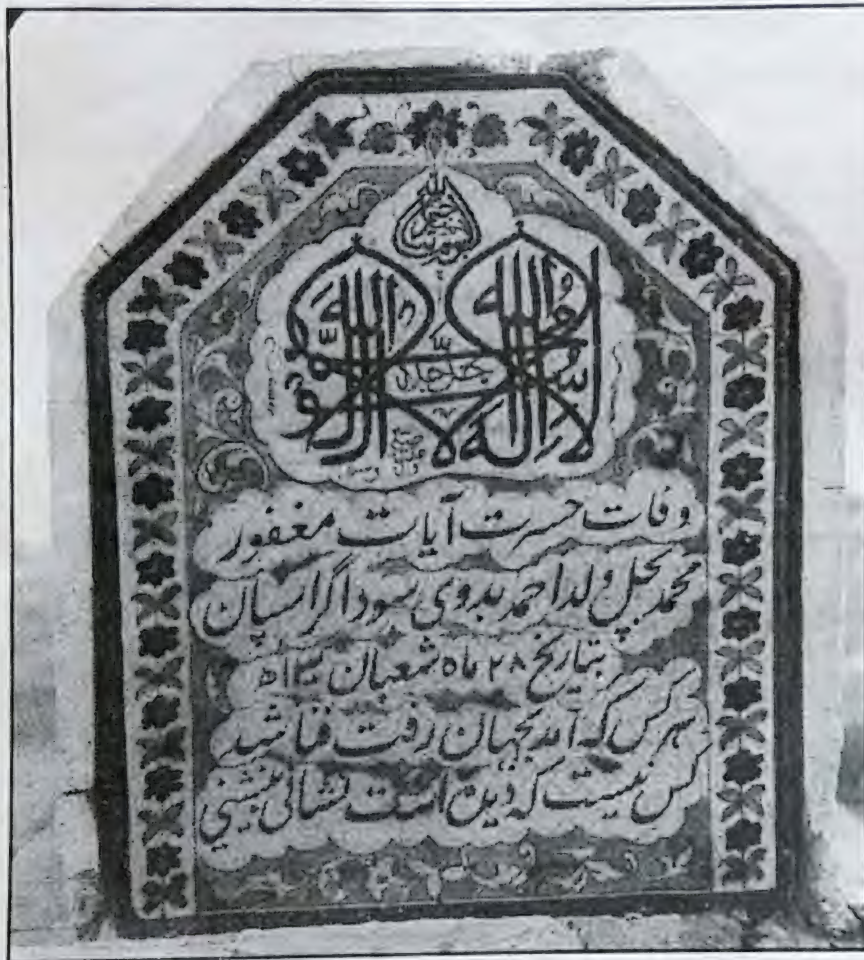 لا اله الا الله محمد رسول الله
وفات حسرت آیات مغفور
محمد بچل ولد احمد بدوی سوداگر اسپان
بتاریخ ۲۸ ماه شعبان
هر کس که آمد بجهان رفت فنا شد
کس نیست که دین است نشانی